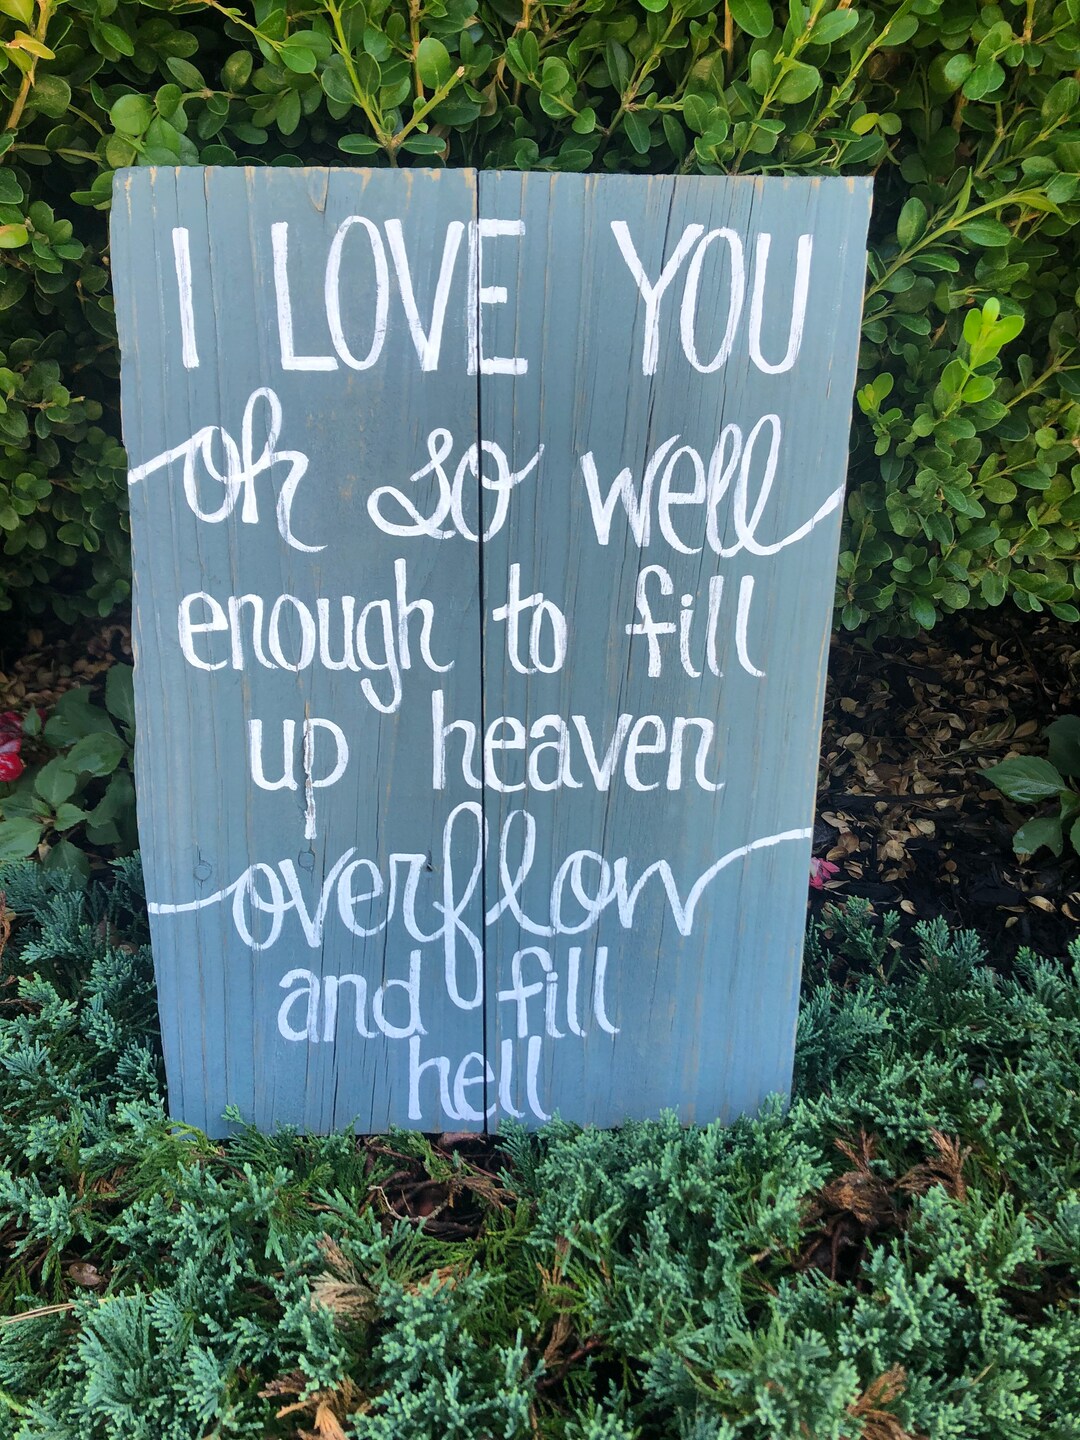 I LOVE YOU
oh so well
enough to fill
up heaven
overflow
and fill
hell